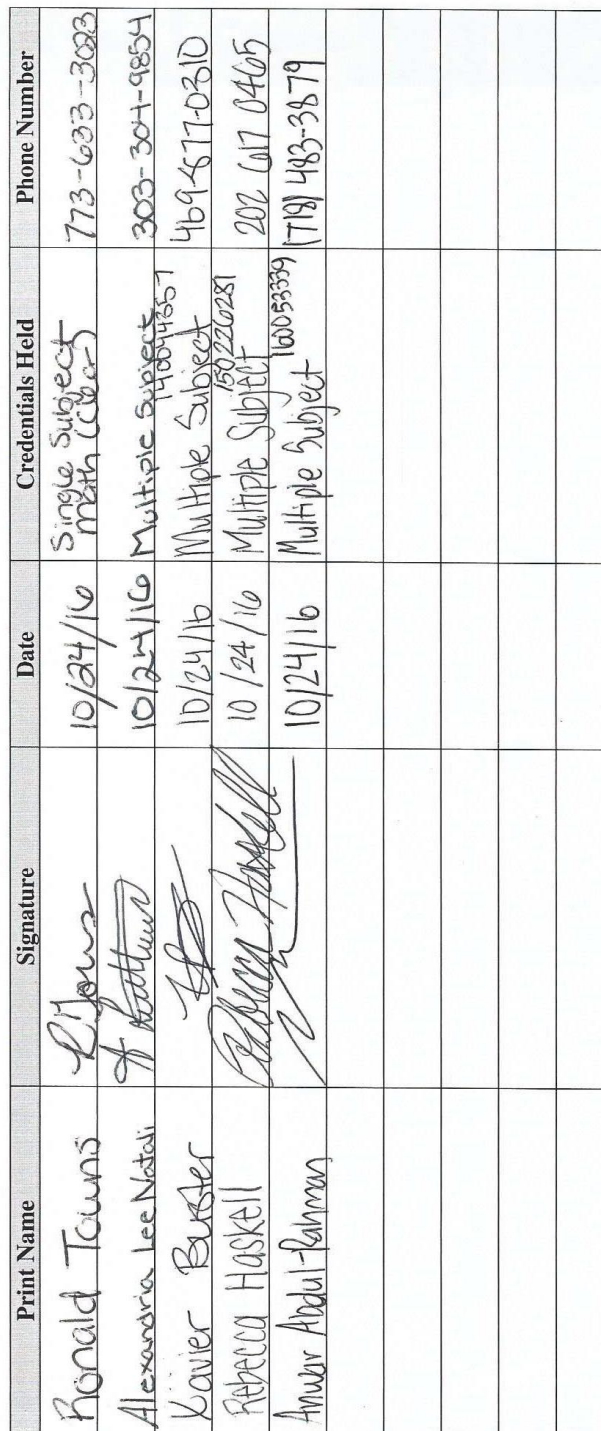 Print Name Signature Date Credentials Held Phone Number
Ronald Towns R Towns 10/24/16 Single Subject 773-633-3023
Math (Clear)
Alexandria Lee Natali 10/24/16 Multiple Subject 303-304-9854
Xavier Buster 10/24/16 Multiple Subject 469-877-0310
Rebecca Haskell Rebecca Haskell 10/24/16 Multiple Subject 150226281 202 617 0465
Anwar Abdul-Rahman 10/24/16 Multiple Subject 160053339 (718) 483-3879